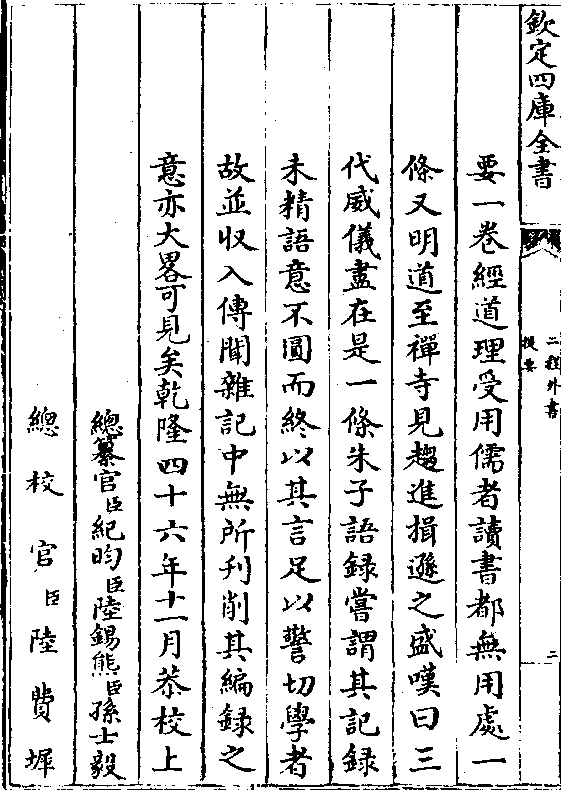 欽定四庫全書
二程外書
提要
二
要一卷經道理受用儒者讀書都無用處一
條又明道至禪寺見趨進揖遜之盛嘆曰三
代威儀盡在是一條朱子語録嘗謂其記録
未精語意不圓而終以其言足以警切學者
故並收入傳聞雜記中無所刋削其編録之
意亦大畧可見矣乾隆四十六年十一月恭校上
總纂官臣紀昀臣陸錫熊臣孫士毅
總校官臣陸費墀